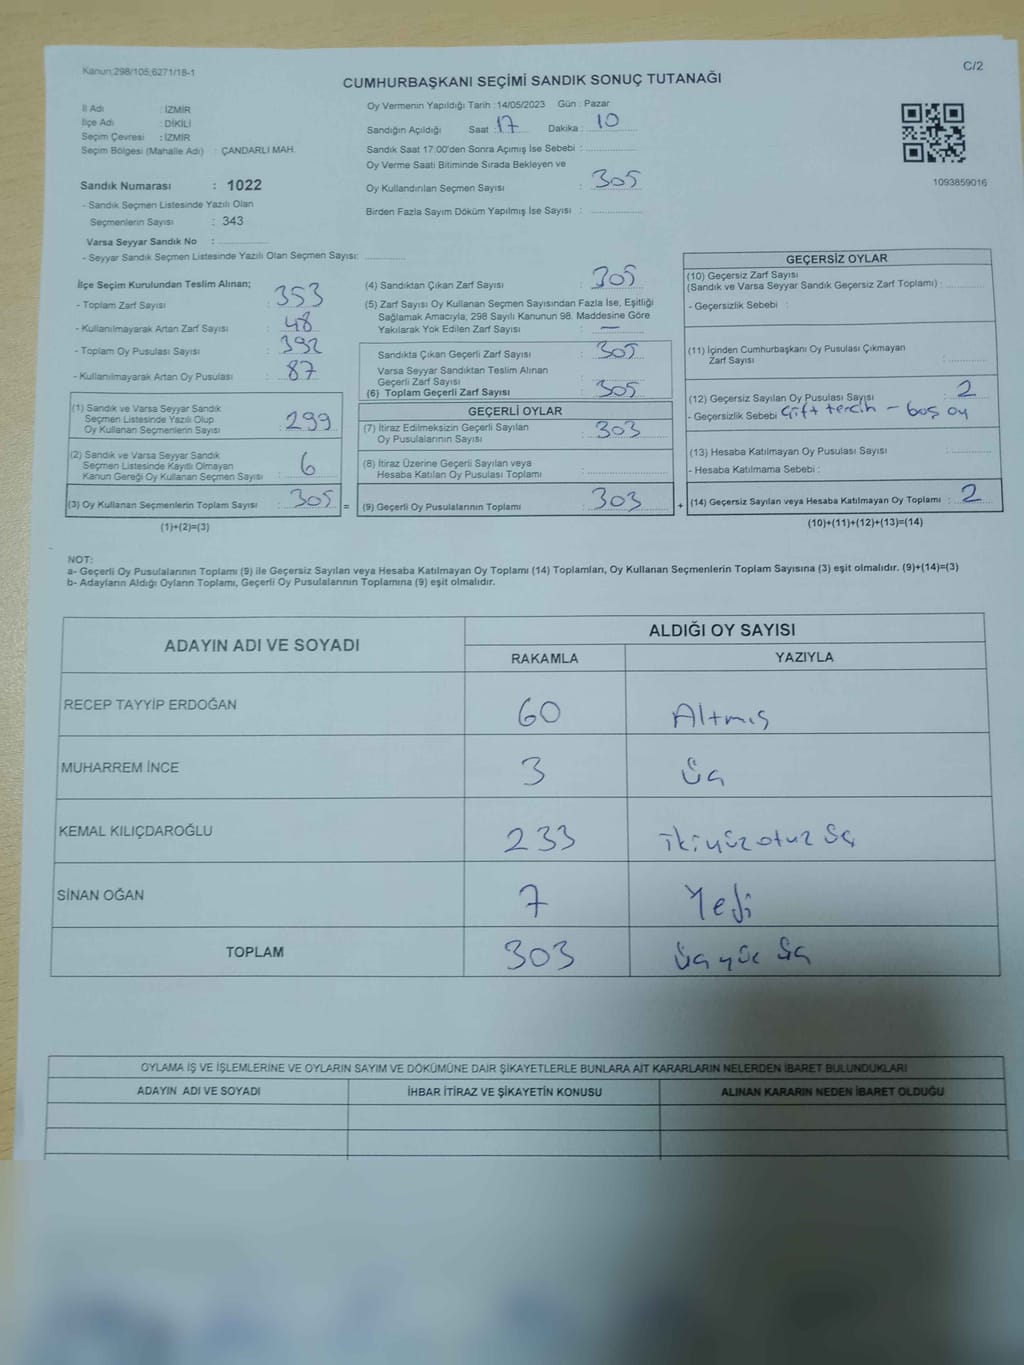 Kanun:298/105;6271/18-1
C/2
CUMHURBAŞKANI SEÇİMİ SANDIK SONUÇ TUTANAĞI
İl Adı : İZMİR
İlçe Adı : DİKİLİ
Seçim Çevresi : İZMİR
Seçim Bölgesi (Mahalle Adı) : ÇANDARLI MAH.
Sandık Numarası : 1022
- Sandık Seçmen Listesinde Yazılı Olan
Seçmenlerin Sayısı : 343
Varsa Seyyar Sandık No :
- Seyyar Sandık Seçmen Listesinde Yazılı Olan Seçmen Sayısı:
Oy Vermenin Yapıldığı Tarih :14/05/2023 Gün : Pazar
Sandığın Açıldığı Saat : 17 Dakika : 10
Sandık Saat 17:00'den Sonra Açımış İse Sebebi :
Oy Verme Saati Bitiminde Sırada Bekleyen ve
Oy Kullandırılan Seçmen Sayısı : 305
Birden Fazla Sayım Döküm Yapılmış İse Sayısı :
1093859016
İlçe Seçim Kurulundan Teslim Alınan;
- Toplam Zarf Sayısı : 353
- Kullanılmayarak Artan Zarf Sayısı : 48
- Toplam Oy Pusulası Sayısı : 392
- Kullanılmayarak Artan Oy Pusulası : 87
(1) Sandık ve Varsa Seyyar Sandık
Seçmen Listesinde Yazılı Olup
Oy Kullanan Seçmenlerin Sayısı : 299
(2) Sandık ve Varsa Seyyar Sandık
Seçmen Listesinde Kayıtlı Olmayan
Kanun Gereği Oy Kullanan Seçmen Sayısı : 6
(3) Oy Kullanan Seçmenlerin Toplam Sayısı : 305 =
(1)+(2)=(3)
(4) Sandıktan Çıkan Zarf Sayısı : 305
(5) Zarf Sayısı Oy Kullanan Seçmen Sayısından Fazla İse, Eşitliği
Sağlamak Amacıyla, 298 Sayılı Kanunun 98. Maddesine Göre
Yakılarak Yok Edilen Zarf Sayısı : —
Sandıkta Çıkan Geçerli Zarf Sayısı : 305
Varsa Seyyar Sandıktan Teslim Alınan
Geçerli Zarf Sayısı :
(6) Toplam Geçerli Zarf Sayısı : 305
GEÇERLİ OYLAR
(7) İtiraz Edilmeksizin Geçerli Sayılan
Oy Pusulalarının Sayısı : 303
(8) İtiraz Üzerine Geçerli Sayılan veya
Hesaba Katılan Oy Pusulası Toplamı :
(9) Geçerli Oy Pusulalarının Toplamı : 303 +
GEÇERSİZ OYLAR
(10) Geçersiz Zarf Sayısı
(Sandık ve Varsa Seyyar Sandık Geçersiz Zarf Toplamı) :
- Geçersizlik Sebebi :
(11) İçinden Cumhurbaşkanı Oy Pusulası Çıkmayan
Zarf Sayısı :
(12) Geçersiz Sayılan Oy Pusulası Sayısı : 2
- Geçersizlik Sebebi Çift tercih - boş oy
(13) Hesaba Katılmayan Oy Pusulası Sayısı :
- Hesaba Katılmama Sebebi :
(14) Geçersiz Sayılan veya Hesaba Katılmayan Oy Toplamı : 2
(10)+(11)+(12)+(13)=(14)
NOT:
a- Geçerli Oy Pusulalarının Toplamı (9) ile Geçersiz Sayılan veya Hesaba Katılmayan Oy Toplamı (14) Toplamları, Oy Kullanan Seçmenlerin Toplam Sayısına (3) eşit olmalıdır. (9)+(14)=(3)
b- Adayların Aldığı Oyların Toplamı, Geçerli Oy Pusulalarının Toplamına (9) eşit olmalıdır.
ADAYIN ADI VE SOYADI
ALDIĞI OY SAYISI
RAKAMLA YAZIYLA
RECEP TAYYİP ERDOĞAN 60 Altmış
MUHARREM İNCE 3 üç
KEMAL KILIÇDAROĞLU 233 ikiyüzotuz üç
SİNAN OĞAN 7 Yedi
TOPLAM 303 üçyüz üç
OYLAMA İŞ VE İŞLEMLERİNE VE OYLARIN SAYIM VE DÖKÜMÜNE DAİR ŞİKAYETLERLE BUNLARA AİT KARARLARIN NELERDEN İBARET BULUNDUKLARI
ADAYIN ADI VE SOYADI İHBAR İTİRAZ VE ŞİKAYETİN KONUSU ALINAN KARARIN NEDEN İBARET OLDUĞU